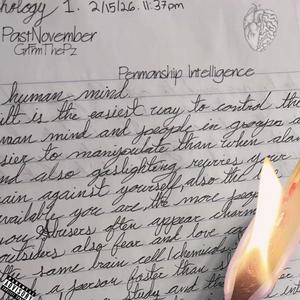 hology 1. 2/15/26. 11:37pm
PastNovember
GrFrmThePz
Penmanship Intelligence
human mind
ilt is the easiest way to control the
man mind and people in groups a
sier to manipulate than when alon
nd also gaslighting rewires your
ain against yourself also the
available you are the more people
Abusers often appear charm
outsiders also fear and love ca
same brain cell/chemicals
a person faster than
study and